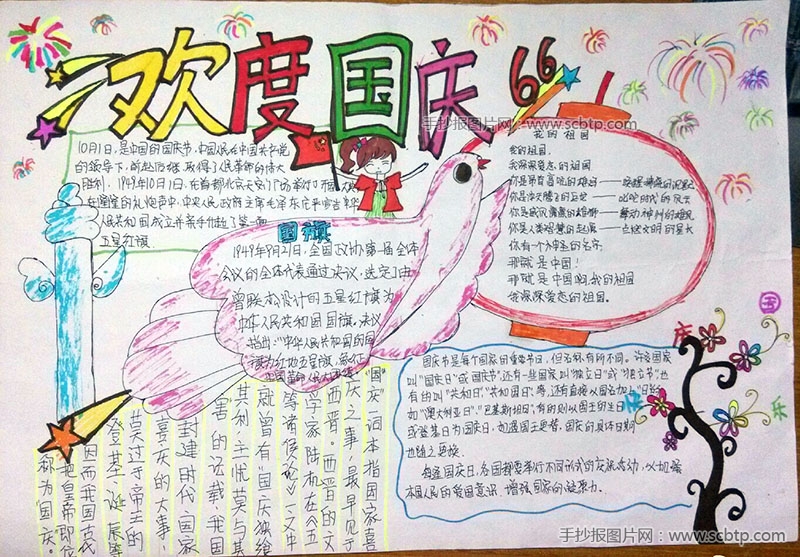 欢度国庆66
手抄报图片网：www.scbtp.com
10月1日,是中国的国庆节,中国人民在中国共产党
的领导下,前赴后继,取得了人民革命的伟大
胜利。1949年10月1日,在首都北京天安门广场举行了开国大典
在隆隆的礼炮声中,中央人民政府主席毛泽东庄严宣告中华
人民共和国成立并亲手升起了第一面
五星红旗
国旗
1949年9月21日,全国政协第一届全体
会议的全体代表通过决议,选定了由
曾联松设计的五星红旗为
中华人民共和国国旗。决议
指出:"中华人民共和国的国
旗为红地五星旗,象征
中国革命人民大团结
我的祖国
我的祖国,
我深深爱恋的祖国
你是昂首高吭的雄鸡——唤醒
你是冲天腾飞的巨龙——叱咤时代的风云
你是威风凛凛的雄狮——舞动神州的雄风
你是人类智慧的起源——点燃文明的星火
你有一个神圣的名字,
那就是中国!
那就是中国啊,我的祖国
我深深爱恋的祖国。
国庆节是每个国家的重要节日,但名称有所不同。许多国家
叫"国庆日"或"国庆节",还有一些国家叫"独立日"或"独立节"也
有的叫"共和日"、"共和国日"等,还有直接以国名加上"日"的
如"澳大利亚日"、"巴基斯坦日",有的则以国王的生日
或登基日为国庆日,如遇国王更替,国庆的具体日期
也随之更换。
每逢国庆日,各国都要举行不同形式的庆祝活动,以加强
本国人民的爱国意识,增强国家的凝聚力。
国
庆
快
乐
"国庆"一词本指国家喜
庆之事,最早见于
西晋。西晋的文
学家陆机在《五
等诸侯论》一文中
就曾有"国庆独飨
其利,主忧莫与其
害"的记载,我国
封建时代,国家
喜庆的大事,
莫过于帝王的
登基、诞辰等
因而我国古代
把皇帝即位
称为国庆。
手抄报图片网：www.scbtp.com